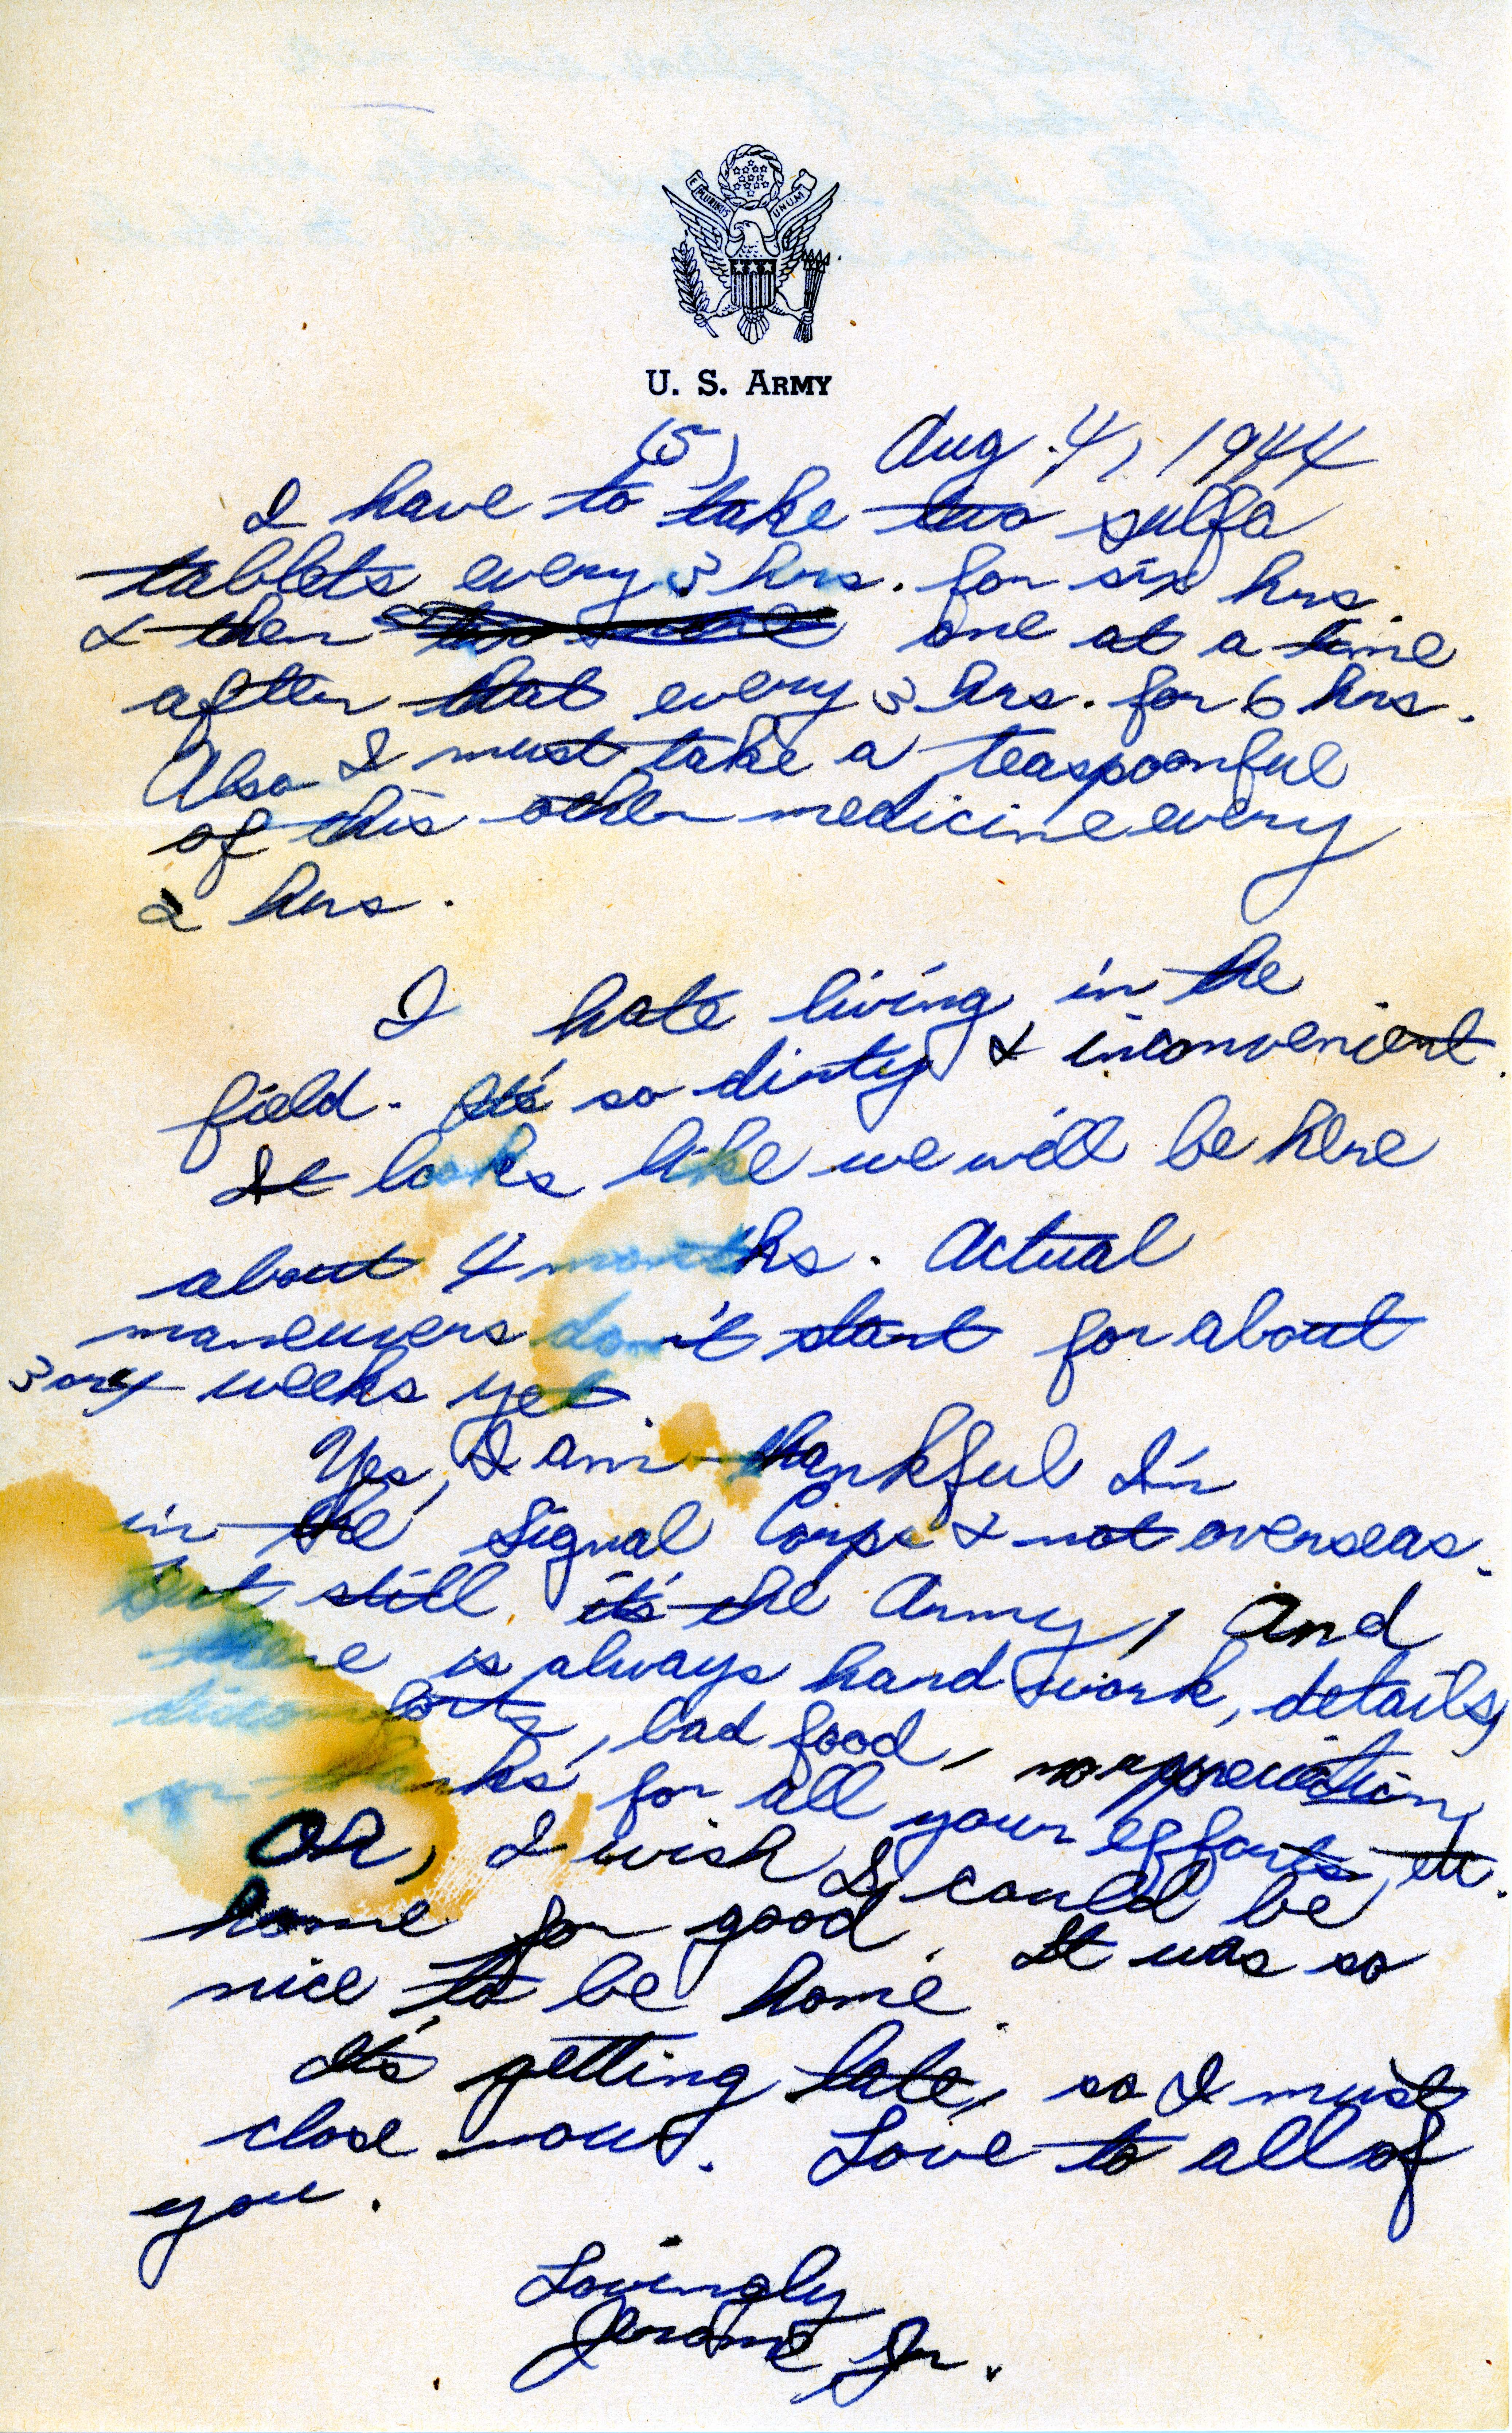 E PLURIBUS UNUM
U. S. ARMY
(5) Aug. 4, 1944
I have to take two sulfa
tablets every 3 hrs. for six hrs.
& then one at a time
after that every 3 hrs. for 6 hrs.
Also I must take a teaspoonful
of this other medicine every
2 hrs.
I hate living in the
field. It's so dirty & inconvenient.
It looks like we will be here
about 4 months. Actual
maneuvers don't start for about
3 or 4 weeks yet.
Yes, I am thankful I'm
in the Signal Corps & not overseas.
But still it's the Army, and
there is always hard work, details,
discomforts, bad food, no appreciation,
or thanks for all your efforts, etc.
Oh, I wish I could be
home for good. It was so
nice to be home.
It's getting late, so I must
close now. Love to all of
you.
Lovingly
Jerome Jr.